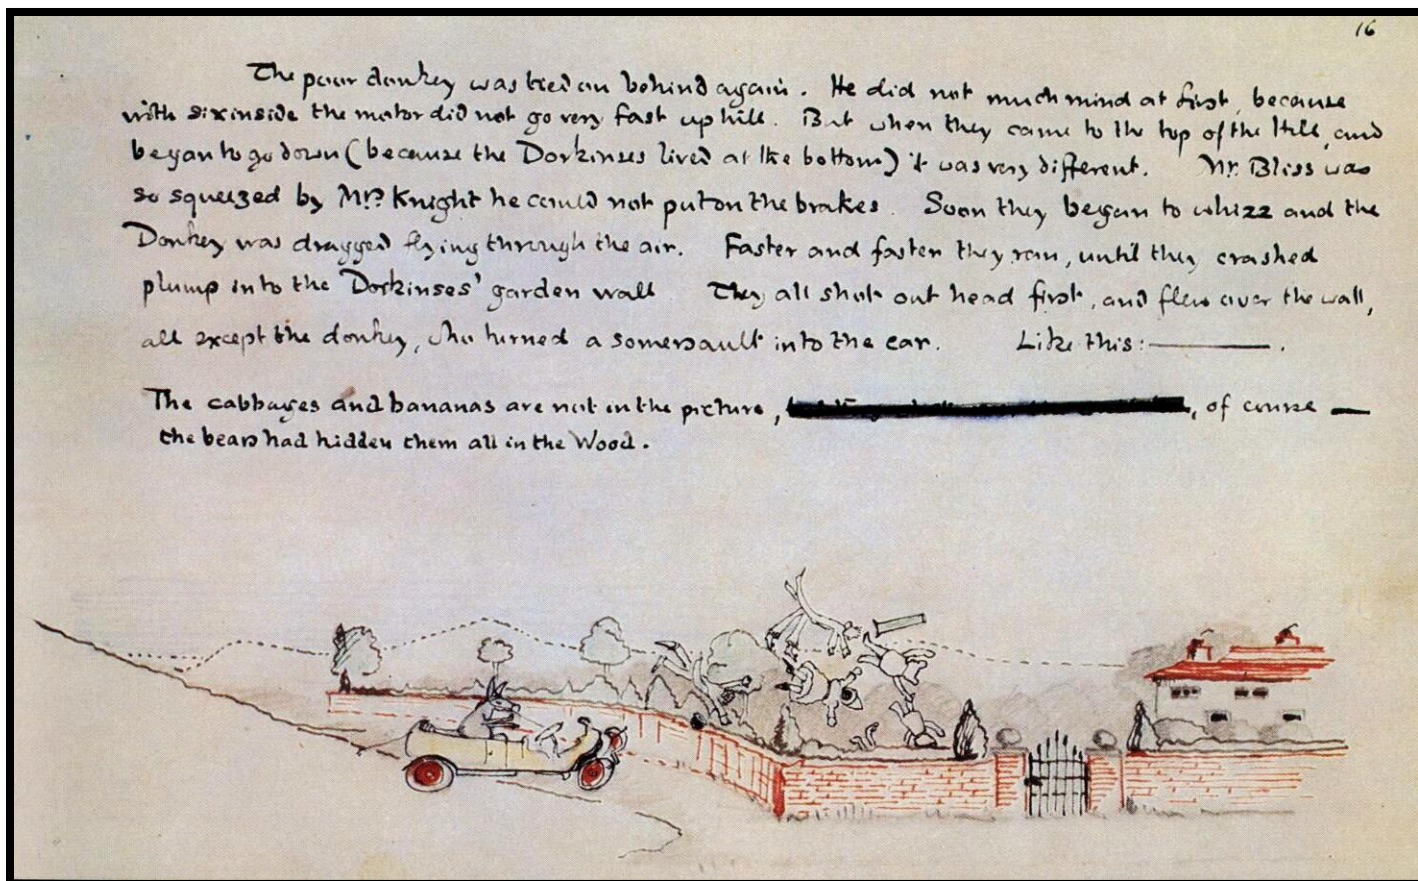 16
The poor donkey was tied on behind again. He did not much mind at first, because
with six inside the motor did not go very fast uphill. But when they came to the top of the Hill, and
began to go down (because the Dorkinses lived at the bottom) it was very different. Mr. Bliss was
so squeezed by Mrs. Knight he could not put on the brakes. Soon they began to whizz and the
Donkey was dragged flying through the air. Faster and faster they ran, until they crashed
plump into the Dorkinses' garden wall They all shot out head first, and flew over the wall,
all except the donkey, who turned a somersault into the car. Like this: ———.
The cabbages and bananas are not in the picture, , of course —
the bears had hidden them all in the Wood.